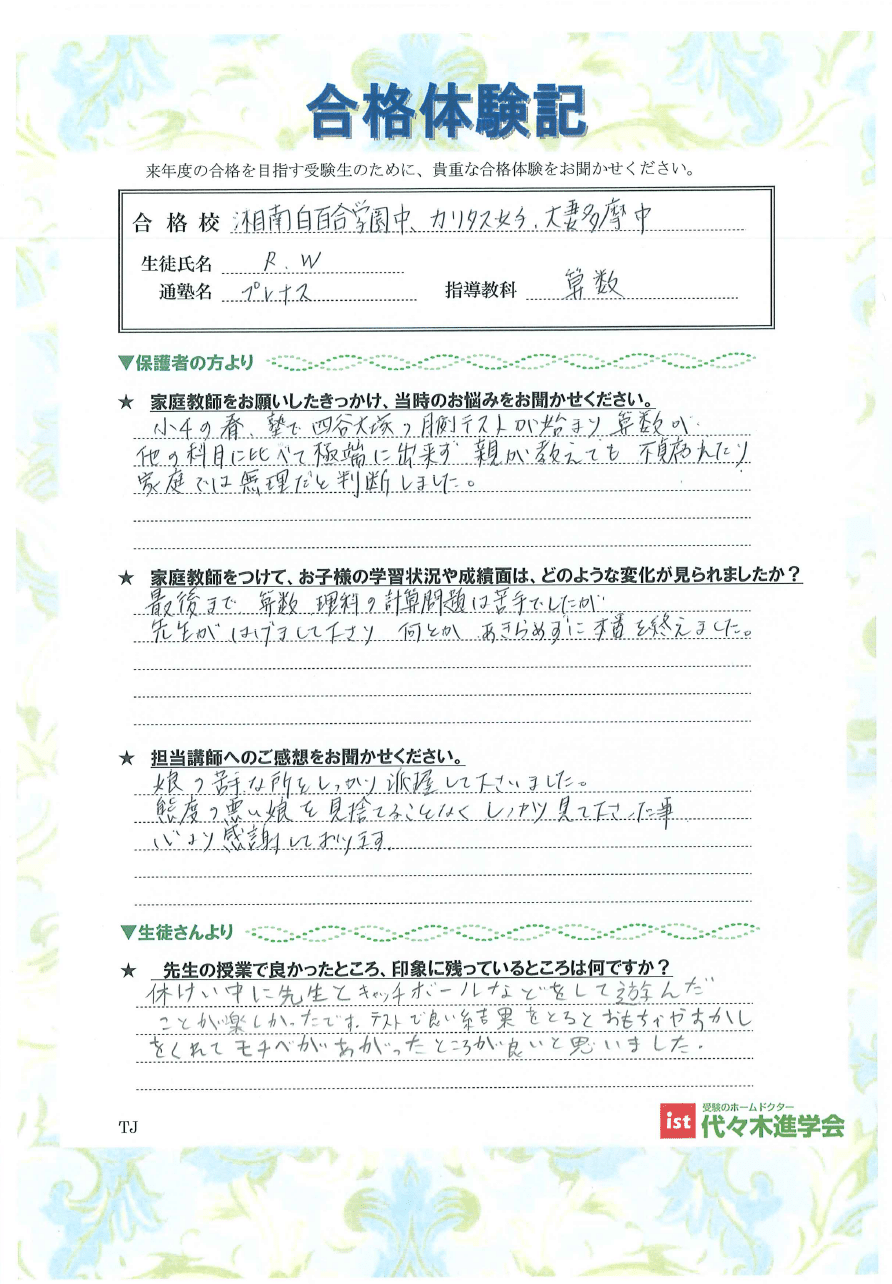 合格体験記
来年度の合格を目指す受験生のために、貴重な合格体験をお聞かせください。
合格校 湘南白百合学園中、カリタス女子、大妻多摩中
生徒氏名 R.W
通塾名 プレナス 指導教科 算数
▼保護者の方より
★ 家庭教師をお願いしたきっかけ、当時のお悩みをお聞かせください。
小4の春、塾で四谷大塚の月例テストが始まり算数が
他の科目に比べて極端に出来ず 親が教えても 不貞腐れたり
家庭では無理だと判断しました。
★ 家庭教師をつけて、お子様の学習状況や成績面は、どのような変化が見られましたか？
最後まで 算数 理科の計算問題は苦手でしたが
先生が はげまして下さり 何とか あきらめずに 本番を終えました。
★ 担当講師へのご感想をお聞かせください。
娘の苦手な所をしっかり 握して下さいました。
態度の悪い娘を見捨てることなくしっかり見て下さった事
心より感謝しております
▼生徒さんより
★ 先生の授業で良かったところ、印象に残っているところは何ですか？
休けい中に先生とキャッチボールなどをして遊んだ
ことが楽しかったです。テストで良い結果をとるとおもちゃやおかし
をくれてモチベがあがったところが良いと思いました。
TJ
ist 受験のホームドクター
代々木進学会